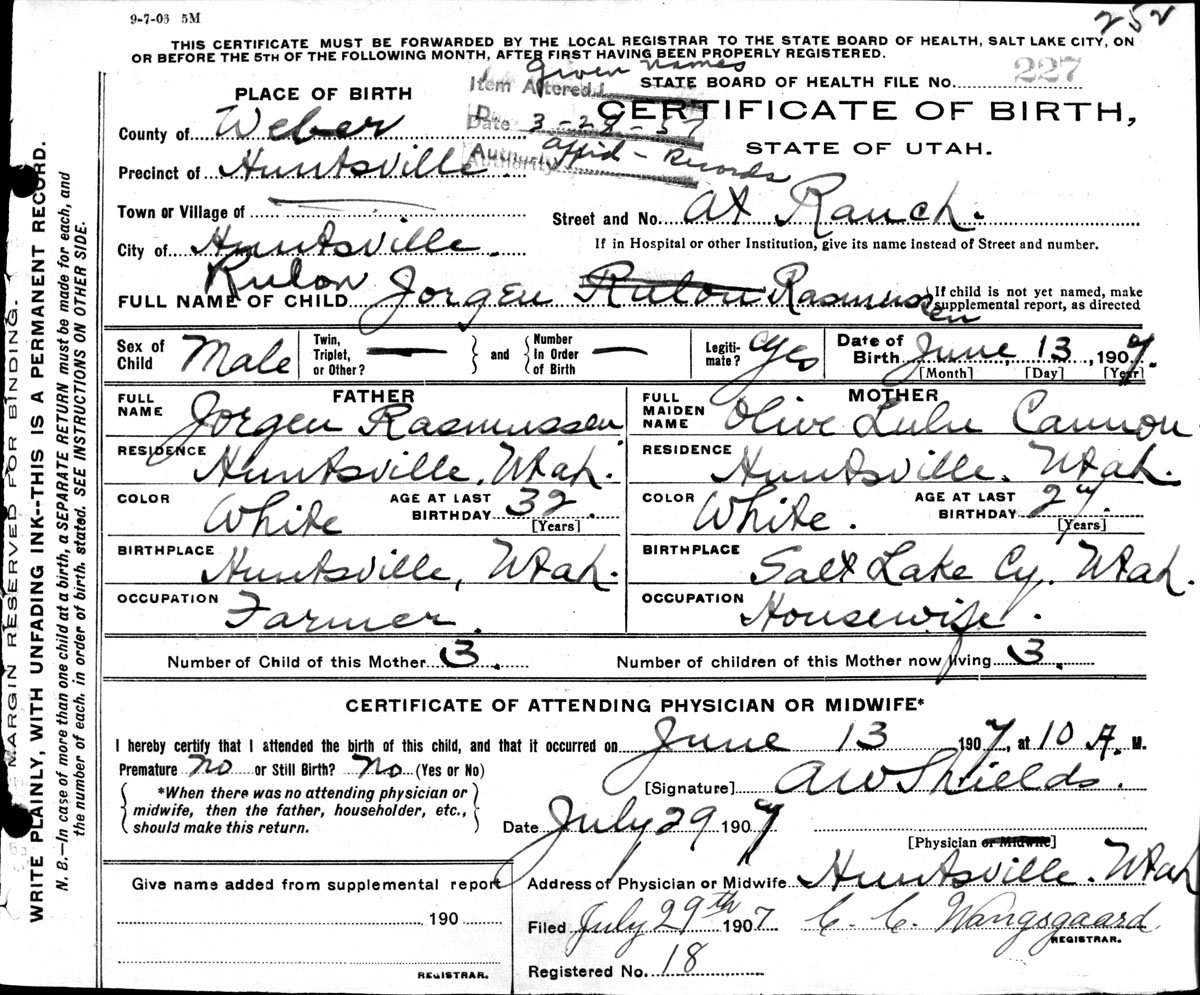 9-7-06 5M
252
THIS CERTIFICATE MUST BE FORWARDED BY THE LOCAL REGISTRAR TO THE STATE BOARD OF HEALTH, SALT LAKE CITY, ON
OR BEFORE THE 5TH OF THE FOLLOWING MONTH, AFTER FIRST HAVING BEEN PROPERLY REGISTERED.
Item Altered Given Names
STATE BOARD OF HEALTH FILE No. 227
PLACE OF BIRTH
CERTIFICATE OF BIRTH,
STATE OF UTAH.
Date 3-28-57
Authority Affid - Records
County of Weber
Precinct of Huntsville
Town or Village of
Street and No. At Ranch.
City of Huntsville.
If in Hospital or other Institution, give its name instead of Street and number.
FULL NAME OF CHILD Rulon Jorgen Rulon Rasmussen
If child is not yet named, make
supplemental report, as directed
Sex of Child Male
Twin, Triplet, or Other?
and
Number In Order of Birth
Legiti-mate? Yes
Date of Birth June 13, 1907.
[Month] [Day] [Year]
FATHER
FULL NAME Jorgen Rasmussen
RESIDENCE Huntsville, Utah.
COLOR White
AGE AT LAST BIRTHDAY 32.
[Years]
BIRTHPLACE Huntsville, Utah.
OCCUPATION Farmer.
MOTHER
FULL MAIDEN NAME Olive Lulu Cannon
RESIDENCE Huntsville. Utah.
COLOR White.
AGE AT LAST BIRTHDAY 27.
[Years]
BIRTHPLACE Salt Lake Cy. Utah.
OCCUPATION Housewife.
Number of Child of this Mother 3.
Number of children of this Mother now living 3.
CERTIFICATE OF ATTENDING PHYSICIAN OR MIDWIFE*
I hereby certify that I attended the birth of this child, and that it occurred on June 13 1907, at 10 A. M.
Premature No or Still Birth? No (Yes or No)
*When there was no attending physician or
midwife, then the father, householder, etc.,
should make this return.
[Signature] AW Shields.
Date July 29 1907
[Physician or Midwife]
Give name added from supplemental report
190
REGISTRAR.
Address of Physician or Midwife Huntsville. Utah
Filed July 29th 1907 C. C. Wangsgaard
REGISTRAR.
Registered No. 18
MARGIN RESERVED FOR BINDING.
WRITE PLAINLY, WITH UNFADING INK--THIS IS A PERMANENT RECORD.
N. B.—In case of more than one child at a birth, a SEPARATE RETURN must be made for each, and
the number of each, in order of birth, stated. SEE INSTRUCTIONS ON OTHER SIDE.